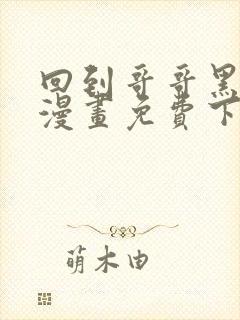 回到哥哥黑
漫畫免費下
萌木由